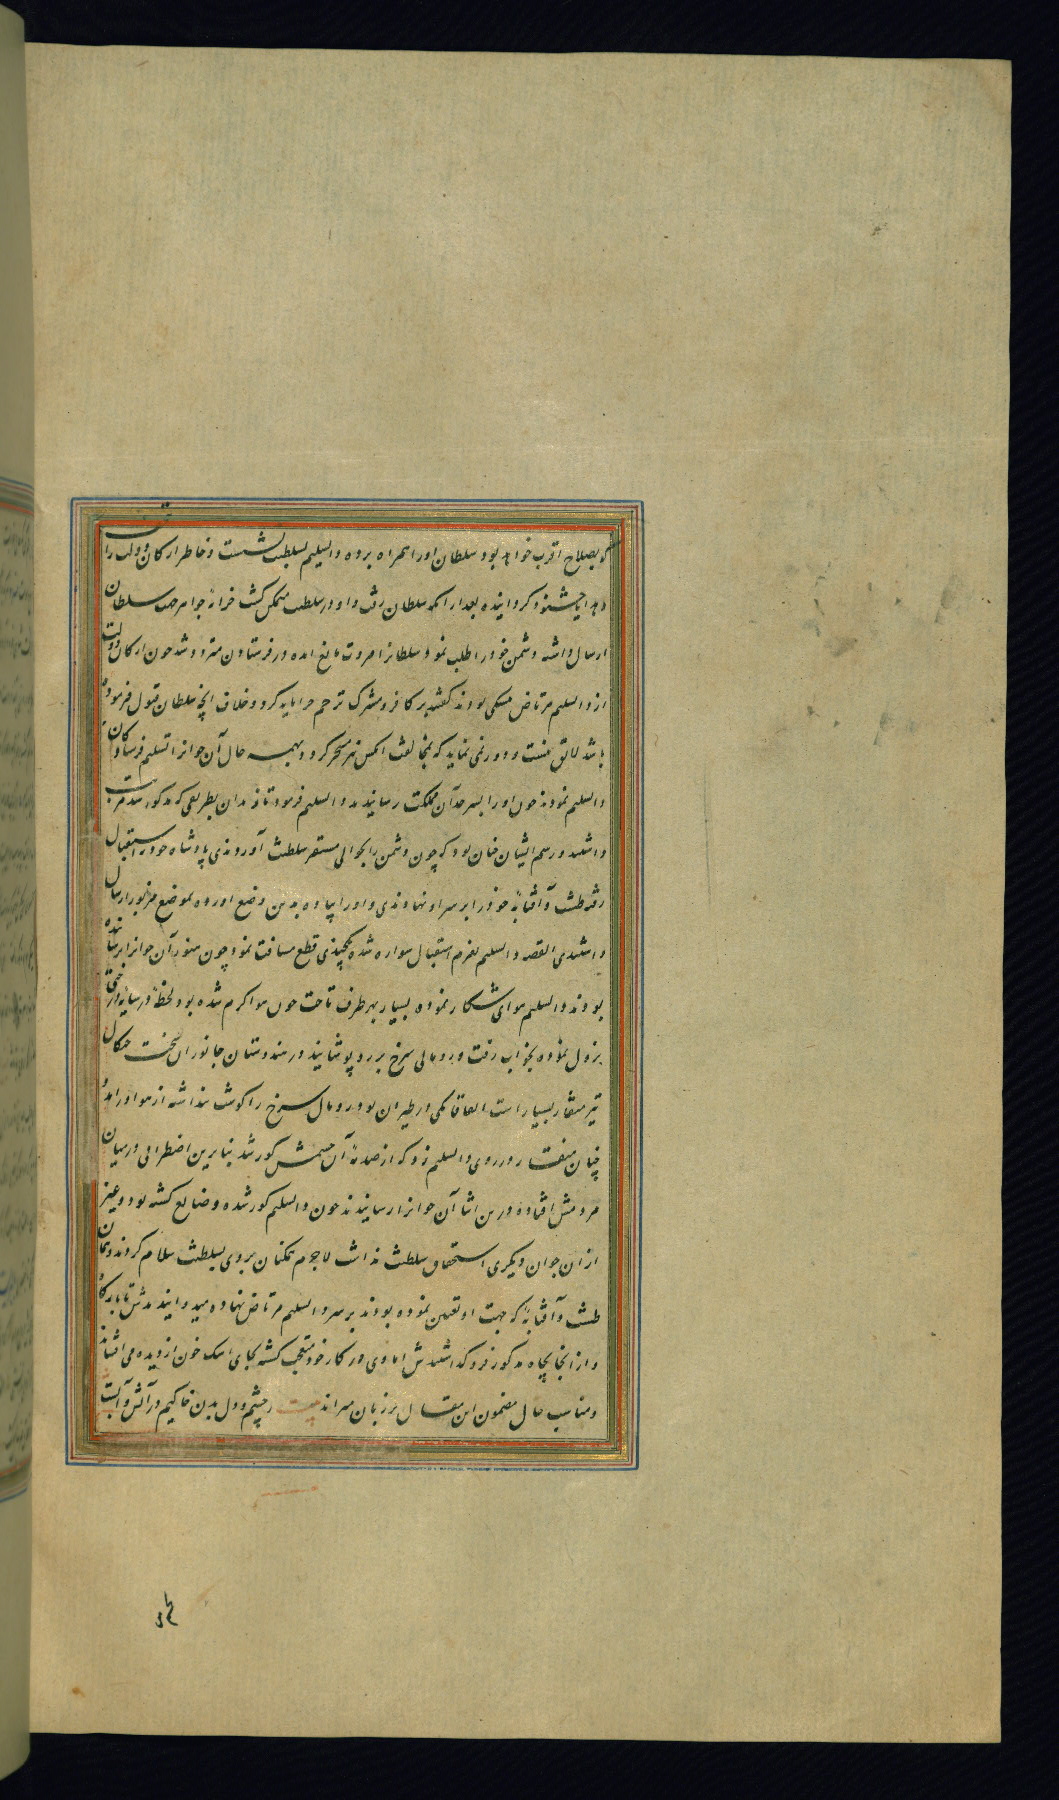 که بصلاح اقرب خواهد بود سلطان او را همراه برده دابشلیم بسلطنت نشست و خاطر ارکان دولت را
بهدایا خشنود گردانیده بعد از آنکه سلطان رفت و او در سلطنت متمکن گشت خزانه جواهر جهت سلطان
ارسال داشته دشمن خود را طلب نمود سلطان را مروت مانع آمده در فرستادن متردد شد چون ارکان دولت
از دابشلیم مرتاض بودند گفتند بر کافر مشرک ترحم چرا باید کرد و خلاف آنچه سلطان قبول فرموده
باشد لایق نیست و دور نمی نماید که بمخالفت منجر گردد بهمه حال آن جوان را تسلیم فرستادگان
دابشلیم نمودند چون او را بسرحد آن مملکت رسانیدند دابشلیم فرمود تا زندان بطریقی که مذکور شد مرتب
داشتند و رسم ایشان چنان بود که چون دشمن را بحوالی مستقر سلطنت آوردندی پادشاه خود باستقبال
رفته طشت و آفتابه خود را بر سر او نهادندی و او را پیاده بدین وضع آورده بموضع مزبور ارسال
داشتندی القصه دابشلیم بعزم استقبال سواره شده قطع مسافت نمود چون هنوز آن جوان را نرسانیده
بودند دابشلیم هوای شکار نموده بسیار بهر طرف تاخت چون هوا گرم شده بود لحظه در سایه درختی
نزول نموده بخواب رفت و رومالی سرخ بر رو پوشانید و در هندوستان جانوران سخت چنگال
تیز منقار بسیار است اتفاقا یکی در طیران بود رومال سرخ را گوشت پنداشته از هوا درآمد
چنان منقار در روی دابشلیم زد که از صدمه آن چشمش کور شد بنابرین اضطرابی در میان
مردمش افتاده درین اثنا آن جوان را رسانیدند چون دابشلیم کور شده و ضایع گشته بود و غیر
از آن جوان دیگری استحقاق سلطنت نداشت لاجرم همگنان بروی بسلطنت سلام کردند و همان
طشت و آفتابه که جهت او تعیین نموده بودند بر سر دابشلیم مرتاض نهاده میدوانیدندش تا ببارگاه
و از آنجا بچاه مذکور فرو گذاشتندش اما وی در کار خود متعجب گشته بجای اشک خون از دیده می افشاند
و مناسب حال مضمون این مقال بر زبان میراند بیت ز چشم و دل بدن خاکیم در آتش و آبست